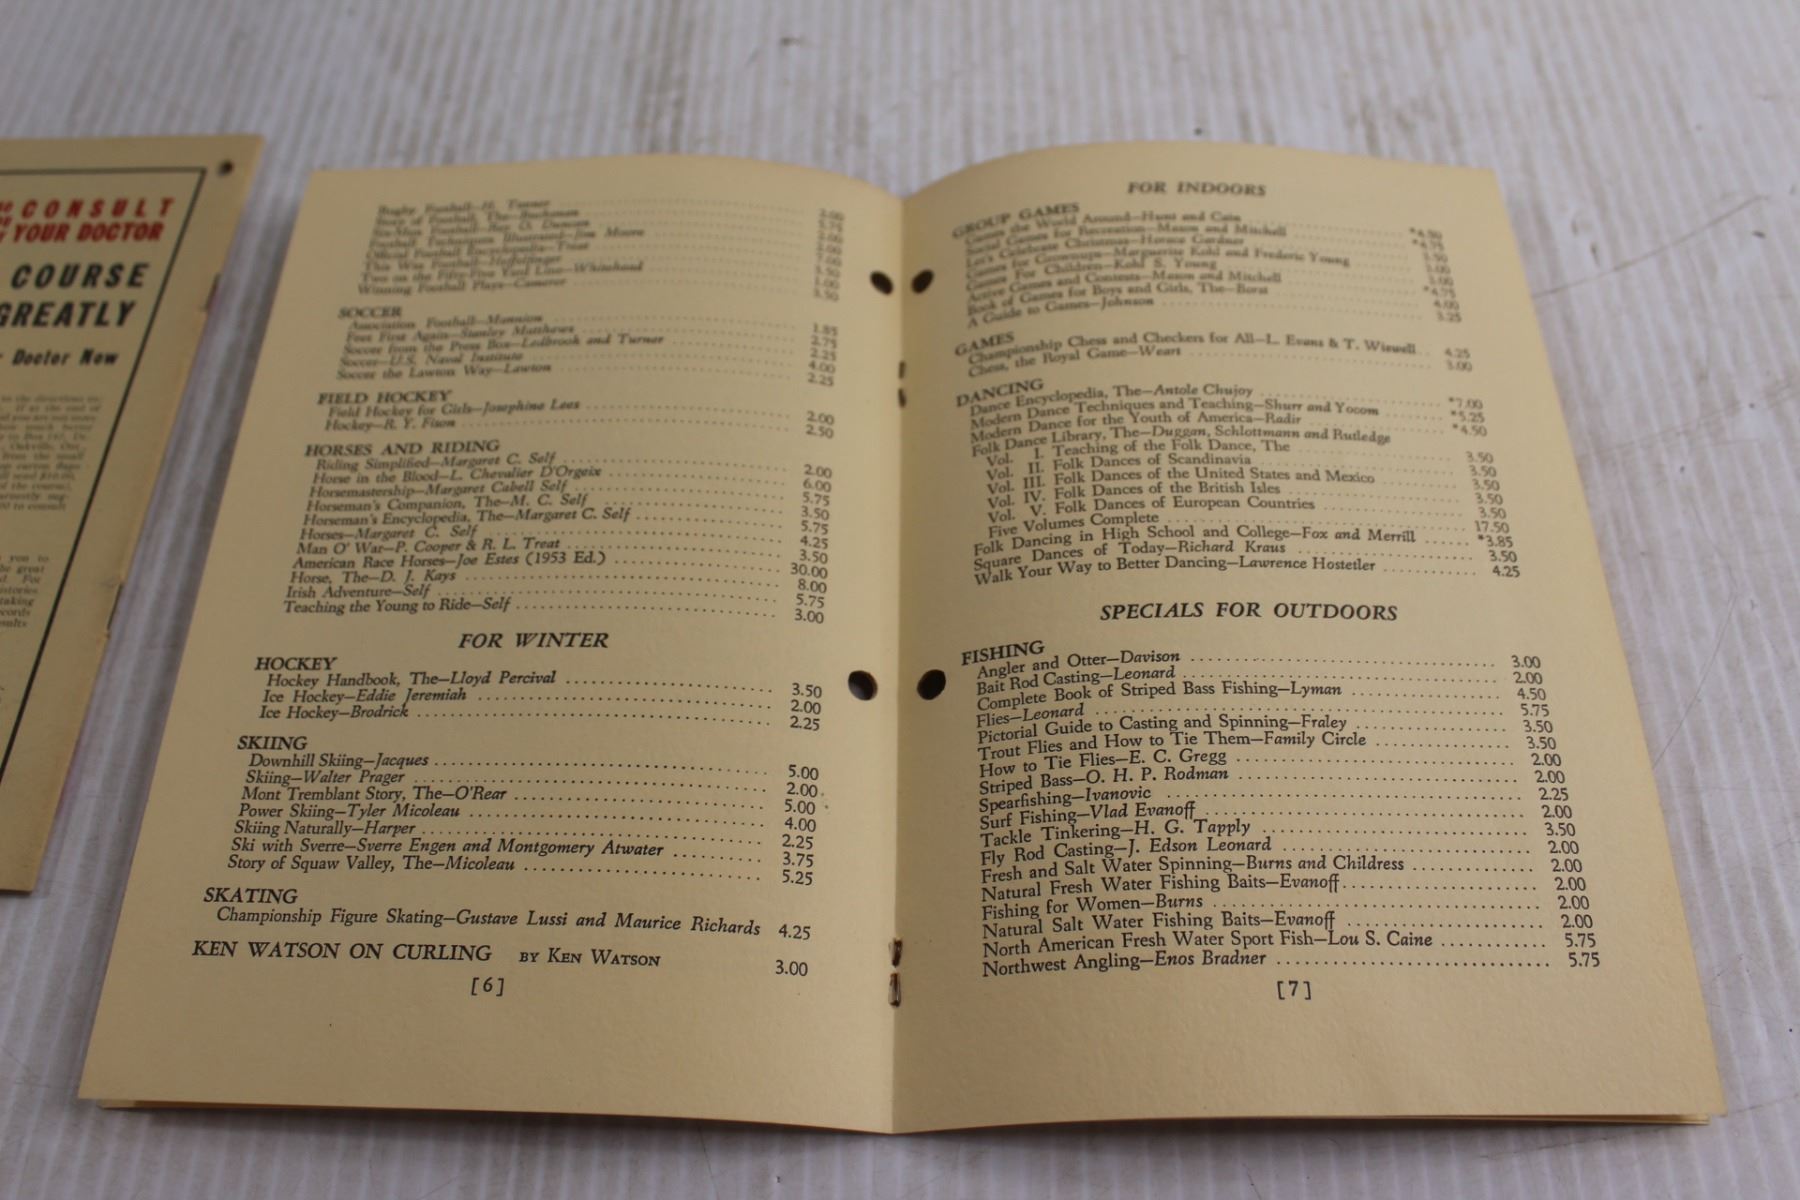 CONSULT
YOUR DOCTOR
COURSE
GREATLY
Doctor Now
Rugby Football—H. Tanner 2.00
Story of Football, The—Buchanan 5.75
Six-Man Football—Ray O. Duncan 2.00
Football Techniques Illustrated—Jim Moore 2.00
Official Football Encyclopedia—Treat 7.00
This Was Football—Heffelfinger 3.50
Two on the Fifty-Five Yard Line—Whitehead 1.00
Winning Football Plays—Camerer 3.50
SOCCER
Association Football—Mannion 1.85
Feet First Again—Stanley Matthews 2.75
Soccer from the Press Box—Ledbrook and Turner 2.25
Soccer—U.S. Naval Institute 4.00
Soccer the Lawton Way—Lawton 2.25
FIELD HOCKEY
Field Hockey for Girls—Josephine Lees 2.00
Hockey—R. Y. Fison 2.50
HORSES AND RIDING
Riding Simplified—Margaret C. Self 2.00
Horse in the Blood—L. Chevalier D'Orgeix 6.00
Horsemastership—Margaret Cabell Self 5.75
Horseman's Companion, The—M. C. Self 3.50
Horseman's Encyclopedia, The—Margaret C. Self 5.75
Horses—Margaret C. Self 4.25
Man O' War—P. Cooper & R. L. Treat 3.50
American Race Horses—Joe Estes (1953 Ed.) 30.00
Horse, The—D. J. Kays 8.00
Irish Adventure—Self 5.75
Teaching the Young to Ride—Self 3.00
FOR WINTER
HOCKEY
Hockey Handbook, The—Lloyd Percival 3.50
Ice Hockey—Eddie Jeremiah 2.00
Ice Hockey—Brodrick 2.25
SKIING
Downhill Skiing—Jacques 5.00
Skiing—Walter Prager 2.00
Mont Tremblant Story, The—O'Rear 5.00
Power Skiing—Tyler Micoleau 4.00
Skiing Naturally—Harper 2.25
Ski with Sverre—Sverre Engen and Montgomery Atwater 3.75
Story of Squaw Valley, The—Micoleau 5.25
SKATING
Championship Figure Skating—Gustave Lussi and Maurice Richards 4.25
KEN WATSON ON CURLING BY KEN WATSON 3.00
[6]
FOR INDOORS
GROUP GAMES
Games the World Around—Hunt and Cain *4.50
Social Games for Recreation—Mason and Mitchell *4.75
Let's Celebrate Christmas—Horace Gardner 3.50
Games for Grownups—Marguerite Kohl and Frederic Young 3.00
Games For Children—Kohl S. Young 3.00
Active Games and Contests—Mason and Mitchell *4.75
Book of Games for Boys and Girls, The—Borst 4.00
A Guide to Games—Johnson 3.25
GAMES
Championship Chess and Checkers for All—L. Evans & T. Wiswell 4.25
Chess, the Royal Game—Weart 3.00
DANCING
Dance Encyclopedia, The—Antole Chujoy *7.00
Modern Dance Techniques and Teaching—Shurr and Yocom *5.25
Modern Dance for the Youth of America—Radir *4.50
Folk Dance Library, The—Duggan, Schlottmann and Rutledge
Vol. I. Teaching of the Folk Dance, The 3.50
Vol. II. Folk Dances of Scandinavia 3.50
Vol. III. Folk Dances of the United States and Mexico 3.50
Vol. IV. Folk Dances of the British Isles 3.50
Vol. V. Folk Dances of European Countries 3.50
Five Volumes Complete 17.50
Folk Dancing in High School and College—Fox and Merrill *3.85
Square Dances of Today—Richard Kraus 3.50
Walk Your Way to Better Dancing—Lawrence Hostetler 4.25
SPECIALS FOR OUTDOORS
FISHING
Angler and Otter—Davison 3.00
Bait Rod Casting—Leonard 2.00
Complete Book of Striped Bass Fishing—Lyman 4.50
Flies—Leonard 5.75
Pictorial Guide to Casting and Spinning—Fraley 3.50
Trout Flies and How to Tie Them—Family Circle 3.50
How to Tie Flies—E. C. Gregg 2.00
Striped Bass—O. H. P. Rodman 2.00
Spearfishing—Ivanovic 2.25
Surf Fishing—Vlad Evanoff 2.00
Tackle Tinkering—H. G. Tapply 3.50
Fly Rod Casting—J. Edson Leonard 2.00
Fresh and Salt Water Spinning—Burns and Childress 2.00
Natural Fresh Water Fishing Baits—Evanoff 2.00
Fishing for Women—Burns 2.00
Natural Salt Water Fishing Baits—Evanoff 2.00
North American Fresh Water Sport Fish—Lou S. Caine 5.75
Northwest Angling—Enos Bradner 5.75
[7]